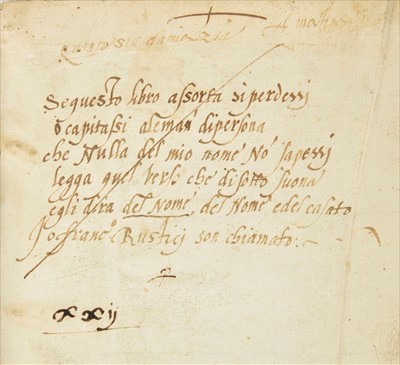 Se questo libro assorta si perdessi
o capitassi aleman dipersona
che Nulla del mio nome No' sapessi
legga quel verso che disotto suona
egli dira del Nome del Nome e del casato
Jo franc° Rustici son chiamato.
xxij